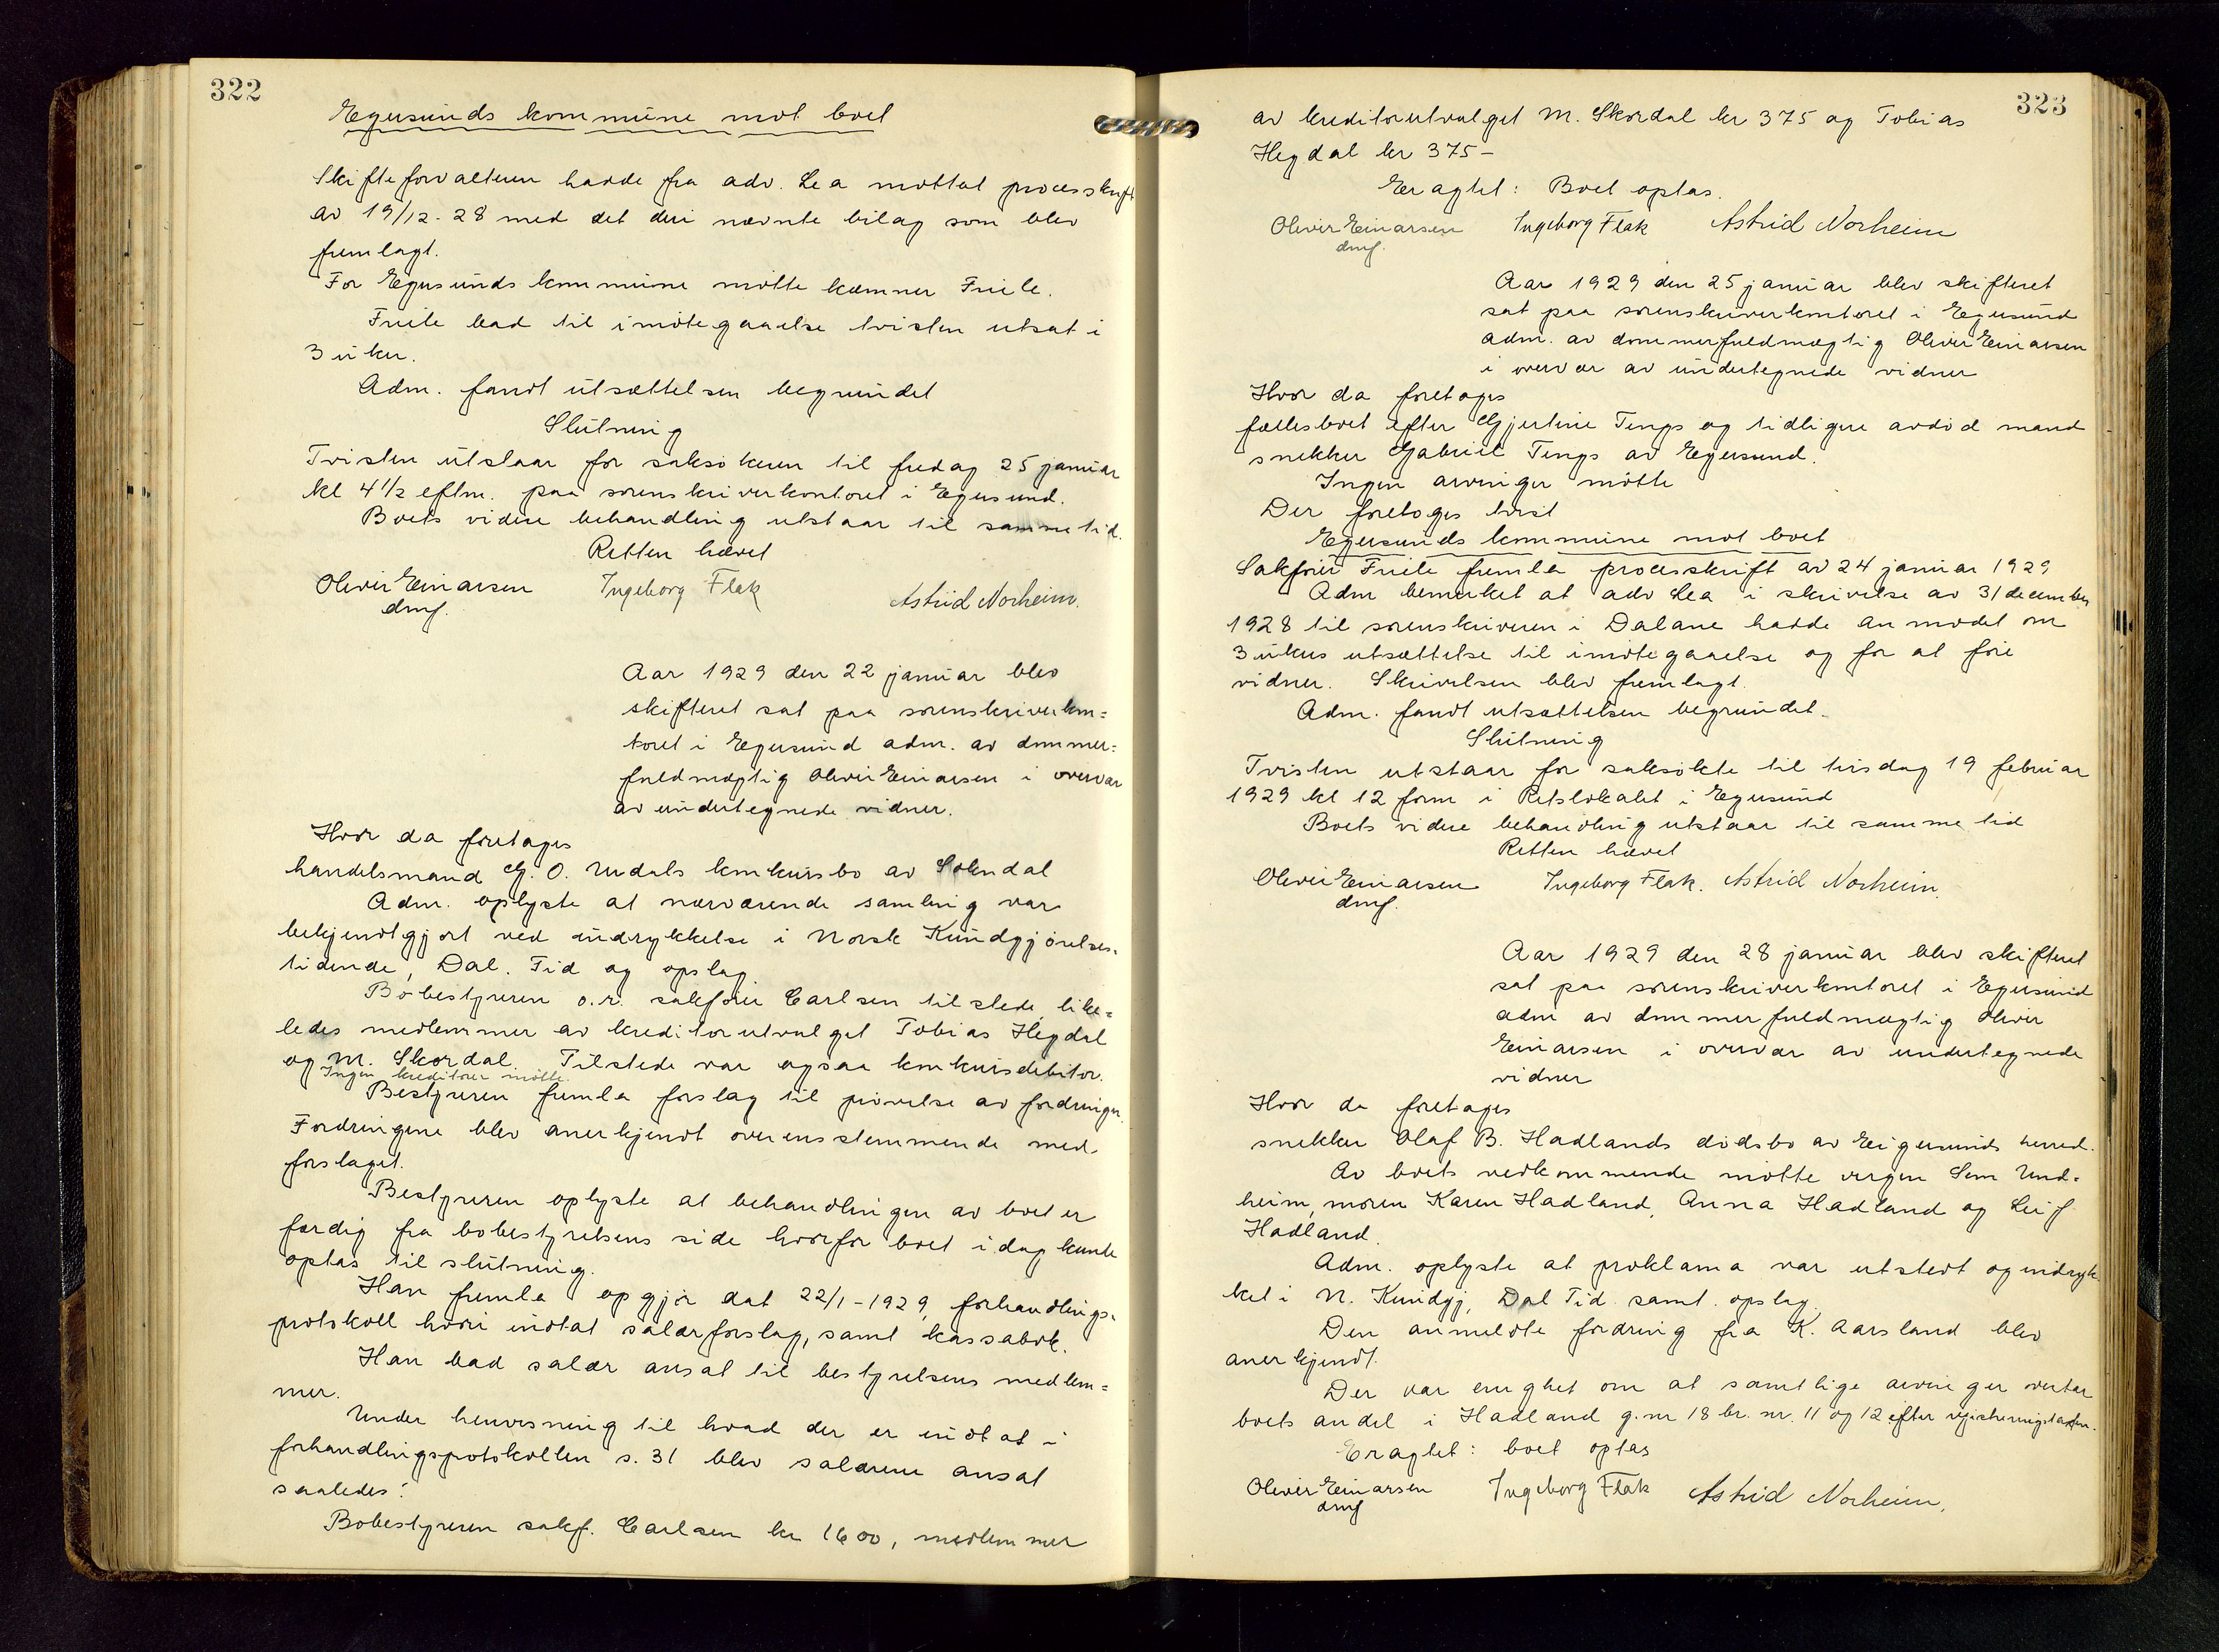 322
Egersunds kommune mot boet
Skifteforvalteren hadde fra adv. Lea mottat processkrift
av 19/12-28 med det deri nævnte bilag som blev
fremlagt.
For Egersunds kommune møtte kæmner Friile.
Friile bad til imøtegaaelse tvisten utsat i
3 uker.
Adm. fandt utsættelsen begrundet
Slutning
Tvisten utstaar for saksøkeren til fredag 25 januar
kl 4 1/2 eftm. paa sorenskriverkontoret i Egersund.
Boets videre behandling utstaar til samme tid.
Retten hævet
Oliver Einarsen Ingeborg Flak Astrid Norheim.
dmf.
Aar 1929 den 22 januar blev
skifteret sat paa sorenskriverkon=
toret i Egersund adm. av dommer=
fuldmægtig Oliver Einarsen i overvær
av undertegnede vidner.
Hvor da foretages
handelsmand G. O. Urdals konkursbo av Sokndal
Adm. oplyste at nærværende samling var
bekjendtgjort ved indrykkelse i Norsk Kundgjørelses-
tidende, Dal. Tid og opslag
Bobestyreren o.r. sakfører Carlsen tilstede, like=
ledes medlemmer av kreditorutvalget Tobias Hegdal
og M. Skordal. Tilstede var ogsaa konkursdebitor.
Ingen kreditorer møtte.
Bestyreren fremla forslag til prøvelse av fordringer.
Fordringene blev anerkjendt overensstemmende med
forslaget.
Bestyreren oplyste at behandlingen av boet er
færdig fra bobestyrelsens side hvorfor boet idag kunde
optas til slutning.
Han fremla opgjør dat 22/1-1929, forhandlings-
protokoll hvori indtat salærforslag, samt kassabok.
Han bad salær ansat til bestyrelsens medlem=
mer.
Under henvisning til hvad der er indtat i
forhandlingsprotokollen s. 31 blev salærene ansat
saaledes:
Bobestyreren sakf. Carlsen kr 1600, medlemmer
323
av kreditorutvalget M. Skordal kr 375 og Tobias
Hegdal kr 375-
Eragtet: Boet optas.
Oliver Einarsen Ingeborg Flak Astrid Norheim
dmf.
Aar 1929 den 25 januar blev skifteret
sat paa sorenskriverkontoret i Egersund
adm. av dommerfuldmægtig Oliver Einarsen
i overvær av undertegnede vidner
Hvor da foretages
fællesboet efter Gjertine Tengs og tidligere avdød mand
snekker Gabriel Tengs av Egersund.
Ingen arvinger møtte
Der foretoges tvist
Egersunds kommune mot boet
Sakfører Friile fremla processkrift av 24 januar 1929
Adm bemerket at adv Lea i skrivelse av 31 december
1928 til sorenskriveren i Dalane hadde anmodet om
3 ukers utsættelse til imøtegaaelse og for at føre
vidner. Skrivelsen blev fremlagt.
Adm. fandt utsættelsen begrundet.
Slutning
Tvisten utstaar for saksøkte til tirsdag 19 februar
1929 kl 12 form i Retslokalet i Egersund
Boets videre behandling utstaar til samme tid
Retten hævet
Oliver Einarsen Ingeborg Flak. Astrid Norheim.
dmf.
Aar 1929 den 28 januar blev skifteret
sat paa sorenskriverkontoret i Egersund
adm av dommerfuldmægtig Oliver
Einarsen i overvær av undertegnede
vidner
Hvor da foretages
snekker Olaf B. Hadlands dødsbo av Eigersunds herred.
Av boets vedkommende møtte vergen Sem Und-
heim, moren Karen Hadland, Anna Hadland og Leif
Hadland.
Adm. oplyste at proklama var utstedt og indryk-
ket i N. Kundgj, Dal Tid samt. opslag.
Den anmeldte fordring fra K. Aarsland blev
anerkjendt.
Der var enighet om at samtlige arvinger overtar
boets andel i Hadland g.nr 18 br. nr. 11 og 12 efter registreringstaksten.
Eragtet: boet optas
Oliver Einarsen Ingeborg Flak Astrid Norheim.
dmf